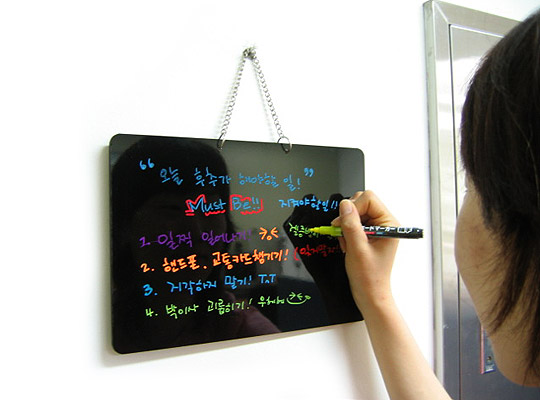 "오늘 후추가 해야할 일!"
Must Be!! 지켜야할일!!
1. 일찍 일어나기!
2. 핸드폰, 교통카드챙기기!
3. 지각하지 말기! T^T
4. 박이사 괴롭히기!